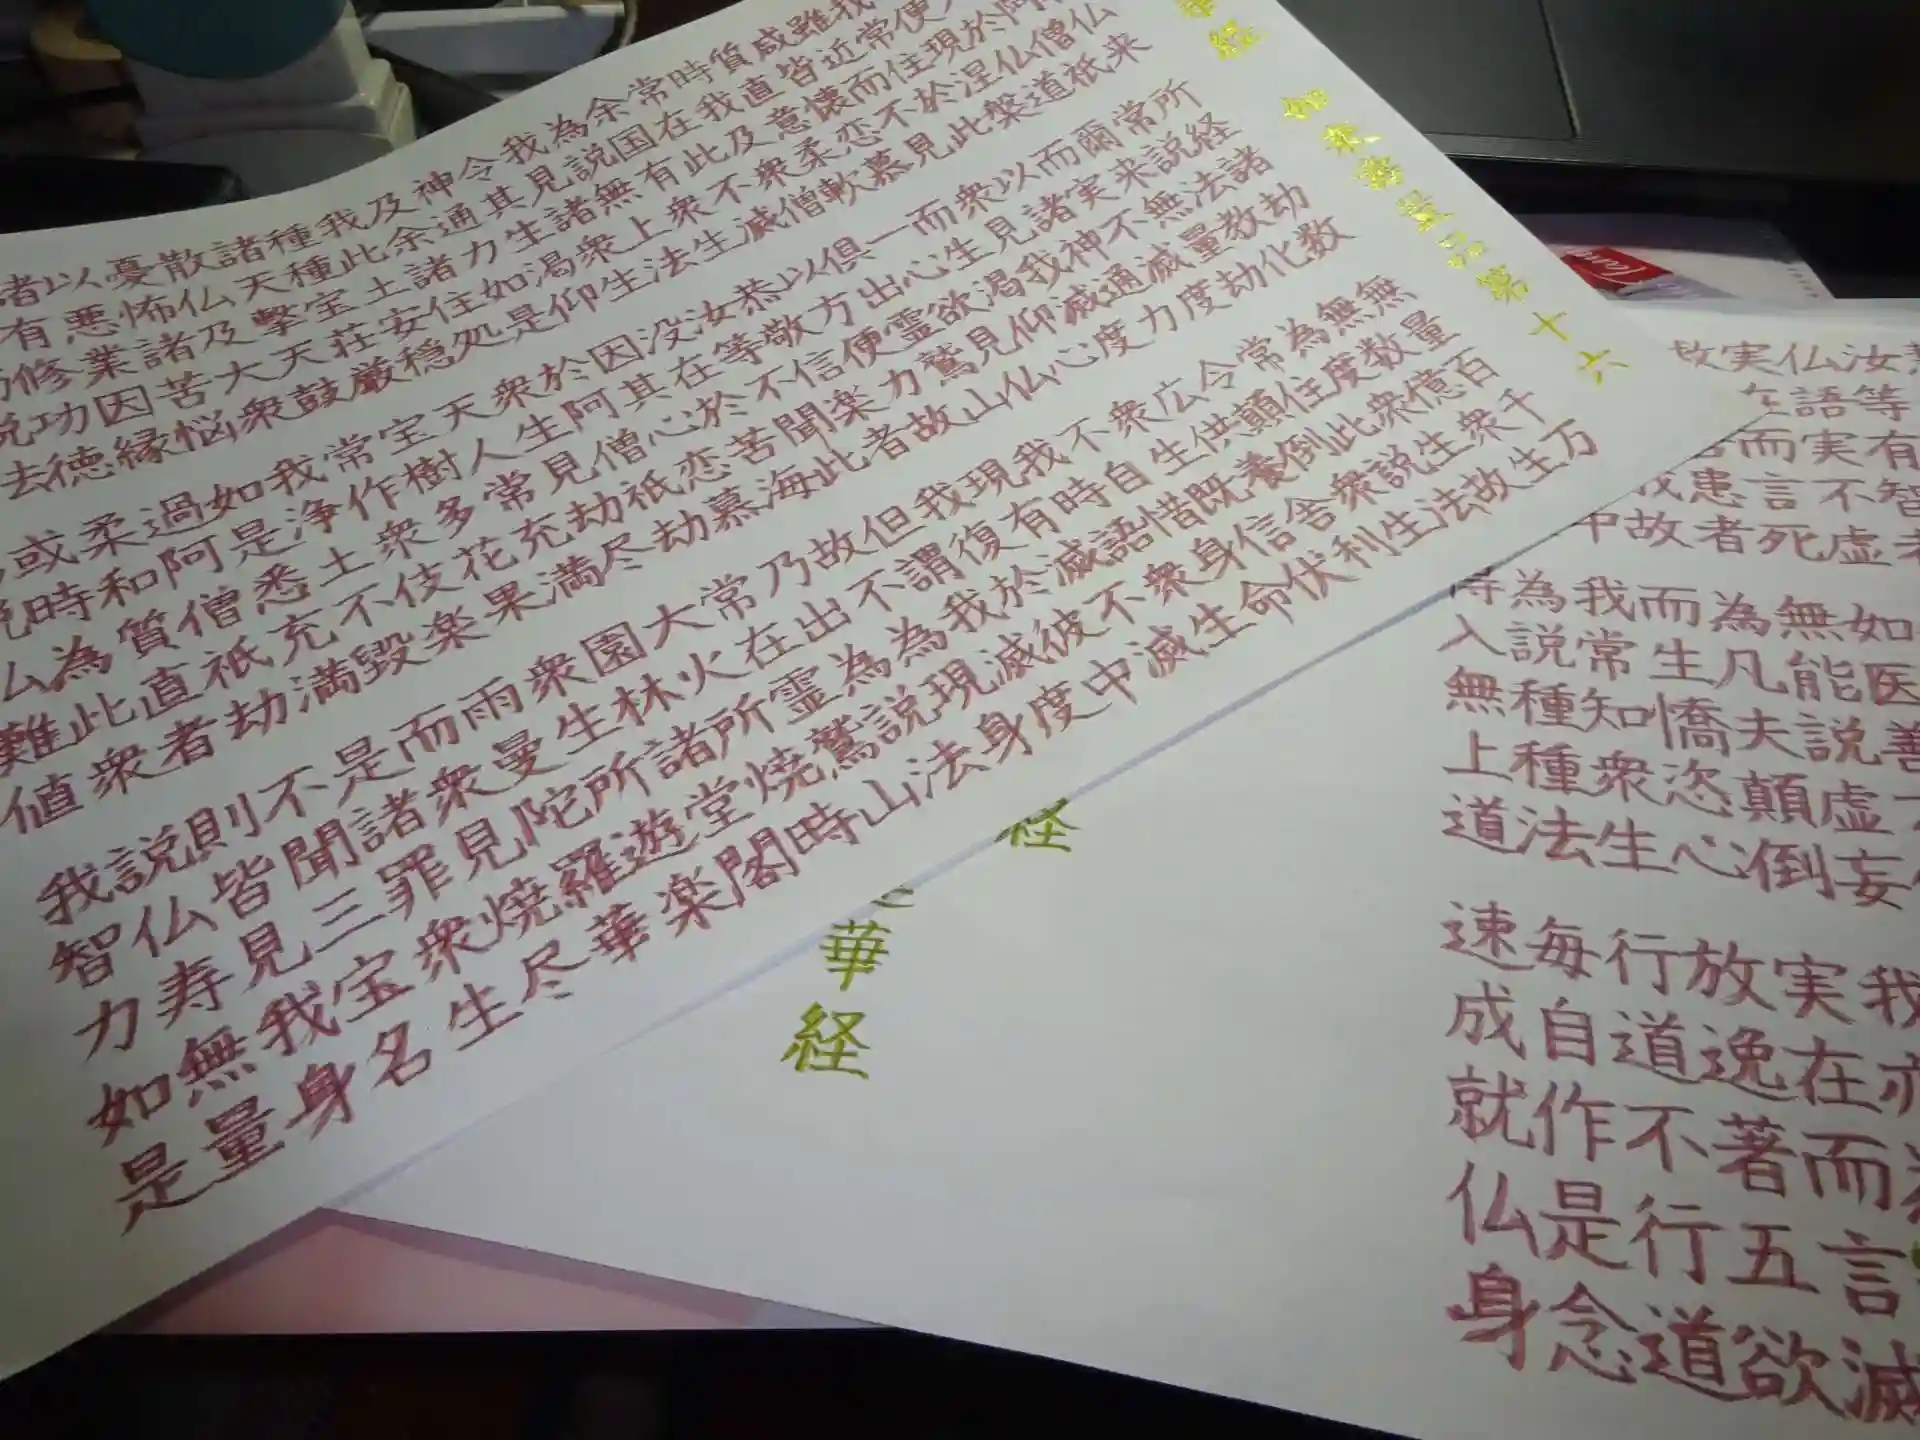 華経
如来壽量品第十六
来 所経諸劫数 無量百千万
僧祇 常説法教化 無数億衆生
入於仏道 爾来無量劫 為度衆生故
便現涅槃 而実不滅度 常住此説法
我常住於此 以諸神通力 令顛倒衆生
雖近而不見 衆見我滅度 広供養舎利
咸皆懐恋慕 而生渇仰心 衆生既信伏
質直意柔軟 一心欲見仏 不自惜身命
時我及衆僧 倶出霊鷲山 我時語衆生
常在此不滅 以方便力故 現有滅不滅
余国有衆生 恭敬信楽者 我復於彼中
為説無上法 汝等不聞此 但謂我滅度
我見諸衆生 没在於苦海 故不為現身
令其心渇仰 因其心恋慕 乃出為説法
神通力如是 於阿僧祇劫 常在霊鷲山
及余諸住処 衆生見劫尽 大火所焼時
我此土安穏 天人常充満 園林諸堂閣
種種宝荘厳 宝樹多花果 衆生所遊楽
諸天撃天鼓 常作衆伎楽 雨曼陀羅華
散仏及大衆 我浄土不毀 而衆見焼尽
憂怖諸苦悩 如是悉充満 是諸罪衆生
以悪業因縁 過阿僧祇劫 不聞三宝名
諸有修功徳 柔和質直者 則皆見我身
説法 或時為此衆 説仏寿無量
難値 我智力如是
汝等有智
仏語実不虚 如医善
実在而言死 無能説虚妄 我亦為
者 為凡夫顛倒 実在而言滅
故 而生憍恣心 放逸著五欲
中 我常知衆生 行道不行道
為説種種法 毎自作是念
得入無上道 速成就仏身
経
華経